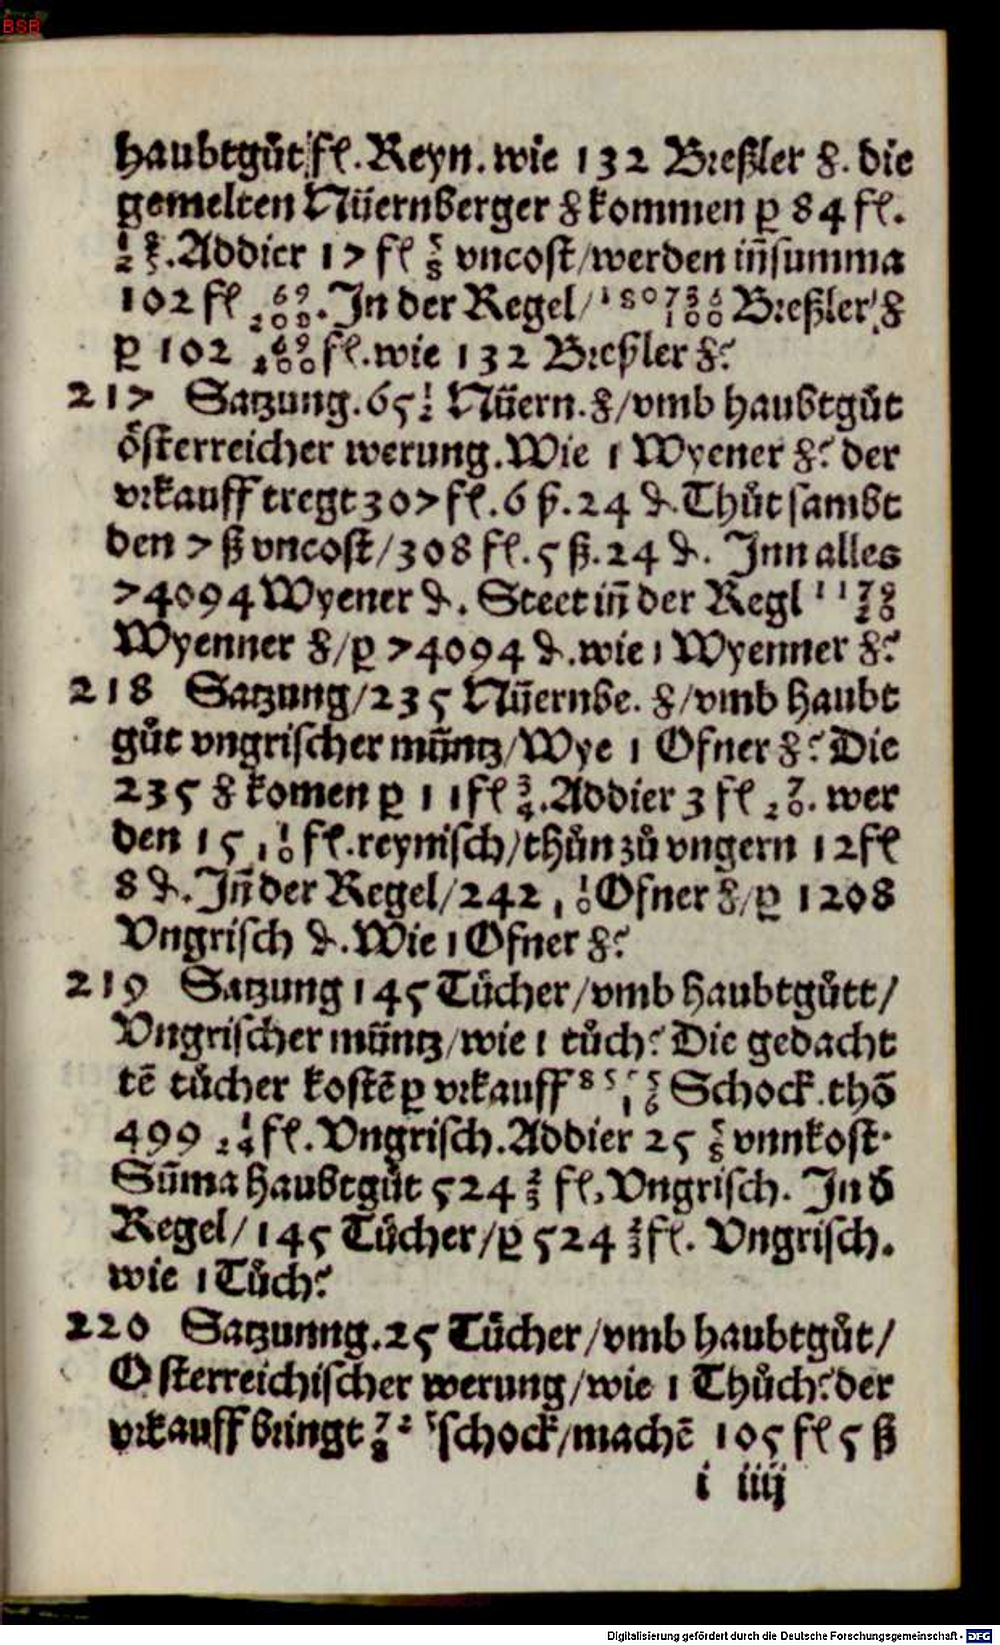 BSB
haubtgůt fl. Reyn. wie 132 Breßler ℔. die
gemelten Nüernberger ℔ kommen ꝑ 84 fl.
1/2 1/5. Addier 17 fl 5/8 vncost/werden iñsumma
102 fl 69/200. In der Regel/ 18073 36/100 Breßler ℔
ꝑ 102 69/200 fl. wie 132 Breßler ℔?
217 Satzung. 65 1/2 Nüern. ℔/vmb haubtgůt
österreicher werung. Wie 1 Wyener ℔? der
vrkauff tregt 307 fl. 6 ß. 24 ₰. Thůt sambt
den 7 ß vncost/308 fl. 5 ß. 24 ₰. Inn alles
74094 Wyener ₰. Steet iñ der Regl
Wyenner ℔/ꝑ 74094 ₰. wie 1 Wyenner ℔?
218 Satzung/235 Nüernbe. ℔/vmb haubt
gůt vngrischer müntz/Wye 1 Ofner ℔? Die
235 ℔ komen ꝑ 11 fl 3/4. Addier 3 fl 7/20. wer
den 15 1/10 fl. reynisch/thůn zů vngern 12 fl
8 ₰. Iñ der Regel/242 1/10 Ofner ℔/ꝑ 1208
Vngrisch ₰. Wie 1 Ofner ℔?
219 Satzung 145 Tücher/vmb haubtgůtt/
Vngrischer müntz/wie 1 tůch? Die gedacht
tē tücher kostē ꝑ vrkauff 85 Schock. thō
499 1/24 fl. Vngrisch. Addier 25 5/8 vnnkost.
Sūma haubtgůt 524 2/3 fl. Vngrisch. In ď
Regel/145 Tücher/ꝑ 524 2/3 fl. Vngrisch.
wie 1 Tůch?
220 Satzunng. 25 Tücher/vmb haubtgůt/
Osterreichischer werung/wie 1 Thůch? der
vrkauff bringt schock/machē 105 fl 5 ß
i iiij
Digitalisierung gefördert durch die Deutsche Forschungsgemeinschaft - DFG